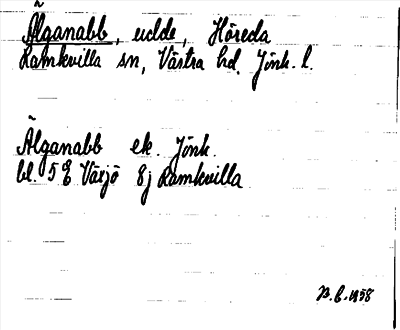 Älganabb, udde, Höreda
Ramkvilla sn, Västra hd. Jönk. l.
Älganabb ek. Jönk.
bl. 5E Växjö 8j Ramkvilla
B.E. 1958